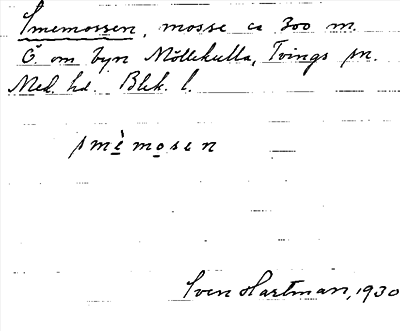 Smemossen, mosse ca 300 m.
Ö. om byn Möllekulla, Tvings sn.
Med. hd. Blek. l.
smè̱mo̱sen
Sven Hartman, 1930